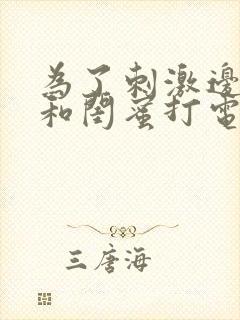 為了刺激邊
和閨蜜打電
三唐海